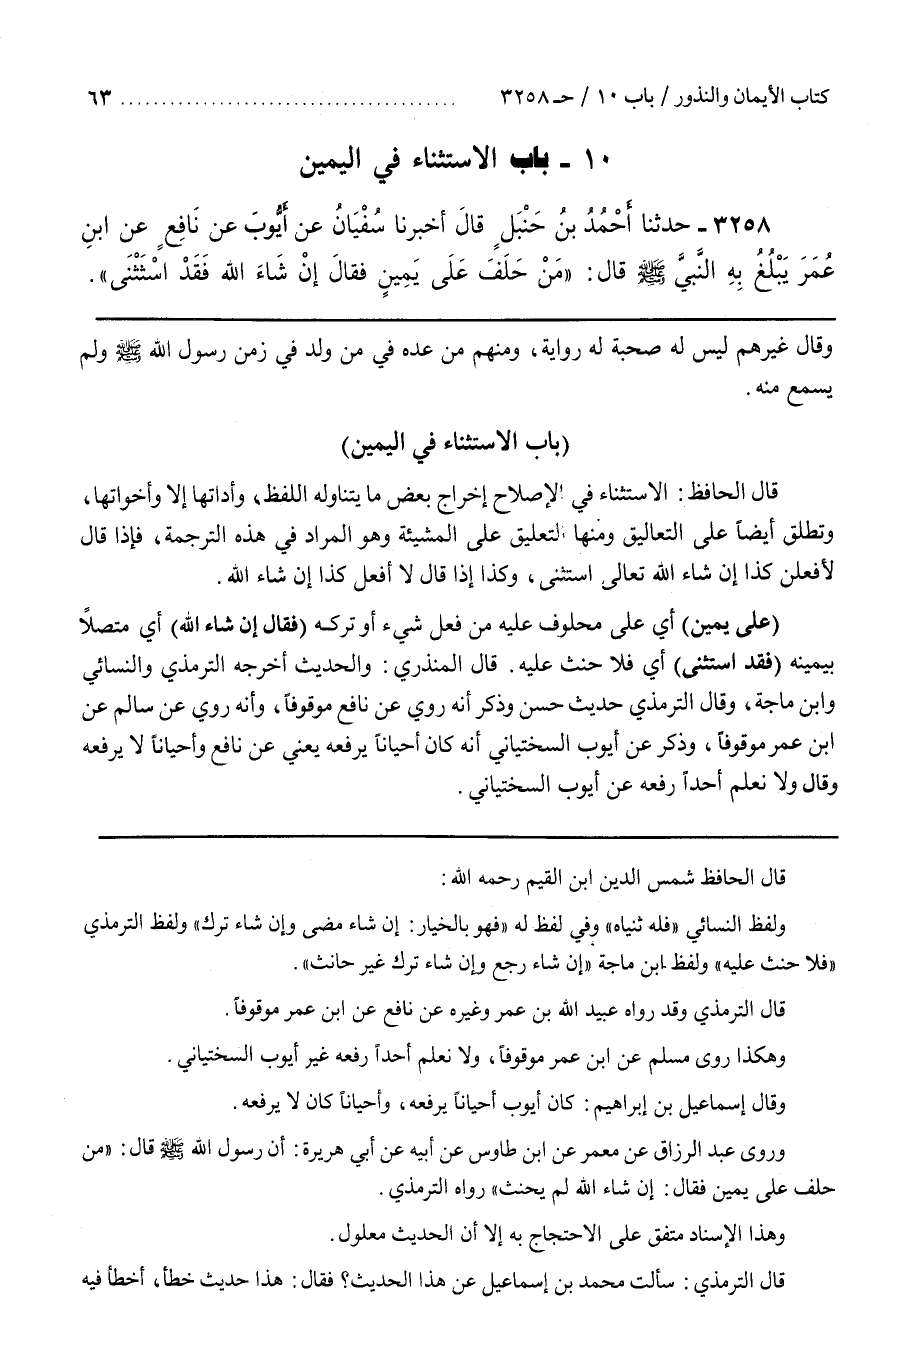 كتاب الأيمان والنذور / باب ١٠ / حـ ٣٢٥٨ ........................................ ٦٣
١٠ ـ باب الاستثناء في اليمين
٣٢٥٨ ـ حدثنا أَحْمَدُ بنُ حَنْبَلٍ قالَ أخبرنا سُفْيَانُ عن أَيُّوبَ عن نَافِعٍ عن ابنِ
عُمَرَ يَبْلُغُ بِهِ النَّبيَّ ﷺ قال: «مَنْ حَلَفَ عَلَى يَمِينٍ فقالَ إنْ شَاءَ الله فَقَدْ اسْتَثْنَى».
وقال غيرهم ليس له صحبة له رواية، ومنهم من عده في من ولد في زمن رسول الله ﷺ ولم
يسمع منه.
(باب الاستثناء في اليمين)
قال الحافظ: الاستثناء في الإصلاح إخراج بعض ما يتناوله اللفظ، وأداتها إلا وأخواتها،
وتطلق أيضاً على التعاليق ومنها التعليق على المشيئة وهو المراد في هذه الترجمة، فإذا قال
لأفعلن كذا إن شاء الله تعالى استثنى، وكذا إذا قال لا أفعل كذا إن شاء الله.
(على يمين) أي على محلوف عليه من فعل شيء أو تركه (فقال إن شاء الله) أي متصلًا
بيمينه (فقد استثنى) أي فلا حنث عليه. قال المنذري: والحديث أخرجه الترمذي والنسائي
وابن ماجة، وقال الترمذي حديث حسن وذكر أنه روي عن نافع موقوفاً، وأنه روي عن سالم عن
ابن عمر موقوفاً، وذكر عن أيوب السختياني أنه كان أحياناً يرفعه يعني عن نافع وأحياناً لا يرفعه
وقال ولا نعلم أحداً رفعه عن أيوب السختياني.
قال الحافظ شمس الدين ابن القيم رحمه الله:
ولفظ النسائي «فله ثنياه» وفي لفظ له «فهو بالخيار: إن شاء مضى وإن شاء ترك» ولفظ الترمذي
«فلا حنث عليه» ولفظ ابن ماجة «إن شاء رجع وإن شاء ترك غير حانث».
قال الترمذي وقد رواه عبيد الله بن عمر وغيره عن نافع عن ابن عمر موقوفاً.
وهكذا روى مسلم عن ابن عمر موقوفاً، ولا نعلم أحداً رفعه غير أيوب السختياني.
وقال إسماعيل بن إبراهيم: كان أيوب أحياناً يرفعه، وأحياناً كان لا يرفعه.
وروى عبد الرزاق عن معمر عن ابن طاوس عن أبيه عن أبي هريرة: أن رسول الله ﷺ قال: «من
حلف على يمين فقال: إن شاء الله لم يحنث» رواه الترمذي.
وهذا الإسناد متفق على الاحتجاج به إلا أن الحديث معلول.
قال الترمذي: سألت محمد بن إسماعيل عن هذا الحديث؟ فقال: هذا حديث خطأ، أخطأ فيه